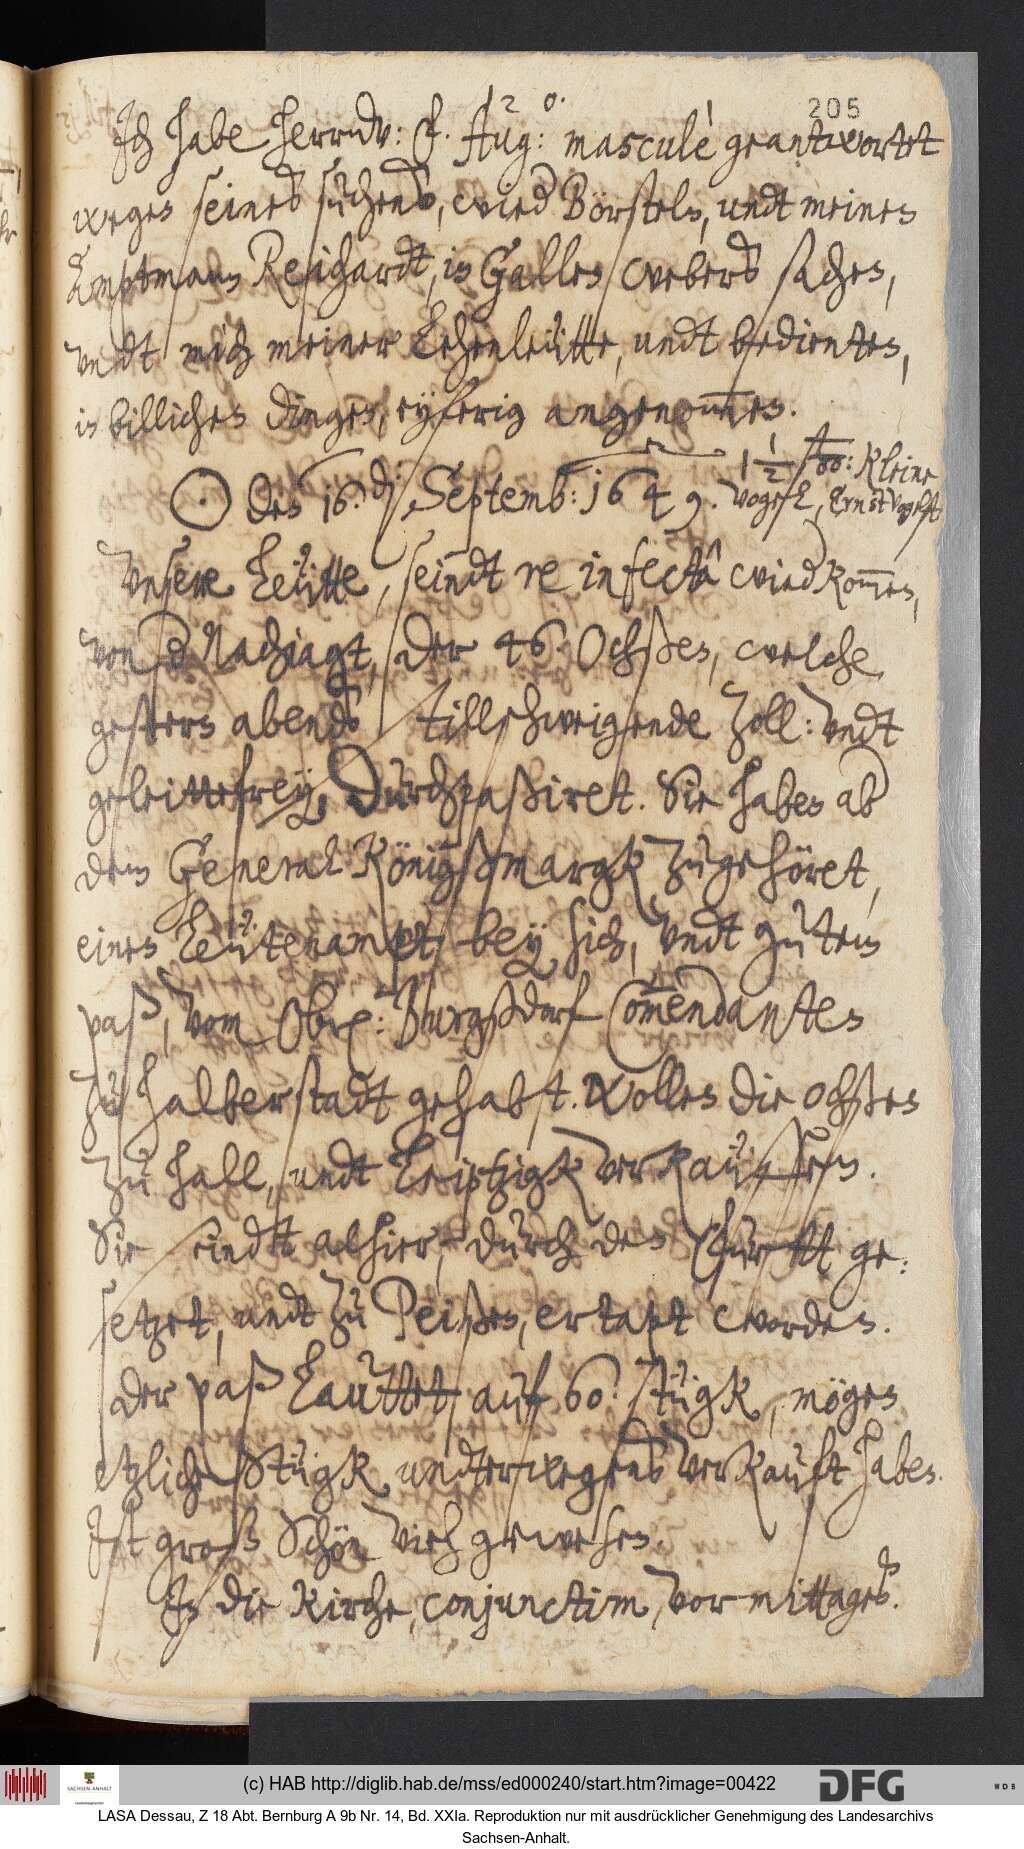 205
Jch habe Herrv: F. Aug: masculè geantwortet
wegen seines suchens, wied Börstels, undt meines
Amptmans Reichardt, in Galles Webers sachen,
undt mich meiner Lehenleütte, undt bedienten,
in billichen dingen, eyferig angenom̅en.
⊙ den 16. Septemb: 1649.
1½ ßo: kleine
vogel, Ernst Vogelst
Unsere Leütte, seindt re infectâ wiedkom̅en,
von d Nachjagt, der 46. Ochßen, welche
gestern abends stillschweigende Zoll: undt
geleittefrey, durchpaßiret. Sie haben ab
dem General Königßmargk zugehöret,
einen Leütenampt, bey sich, undt gutem
paß, vom Obr: Burgßdorf Com̅endanten
zu Halberstadt gehabt. Wollen die ochßen
zu Hall, undt Leiptzigk verkauffen.
Sie sindt alhier, durch den Churfst ge:
setzet, undt zu Peißen, ertapt worden.
Der paß lauttet auf 60. stügk, mögen
etzliche Stügk undterwegens verkauft haben.
Jst groß Schön vieh gewesen.
Jn die kirche conjunctim, vormittages.
(c) HAB http://diglib.hab.de/mss/ed000240/start.htm?image=00422
SACHSEN-ANHALT
DFG
WDB
LASA Dessau, Z 18 Abt. Bernburg A 9b Nr. 14, Bd. XXIa. Reproduktion nur mit ausdrücklicher Genehmigung des Landesarchivs
Sachsen-Anhalt.